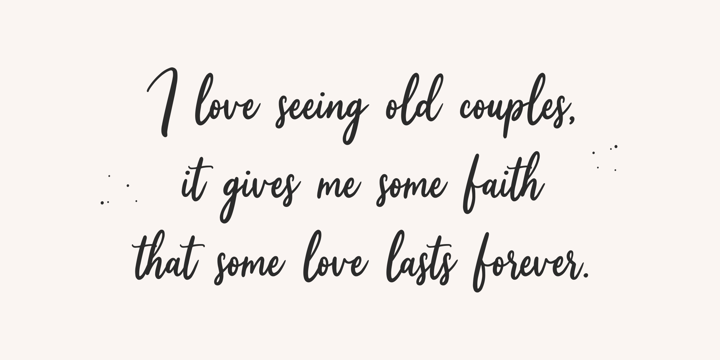 I love seeing old couples,
it gives me some faith
that some love lasts forever.